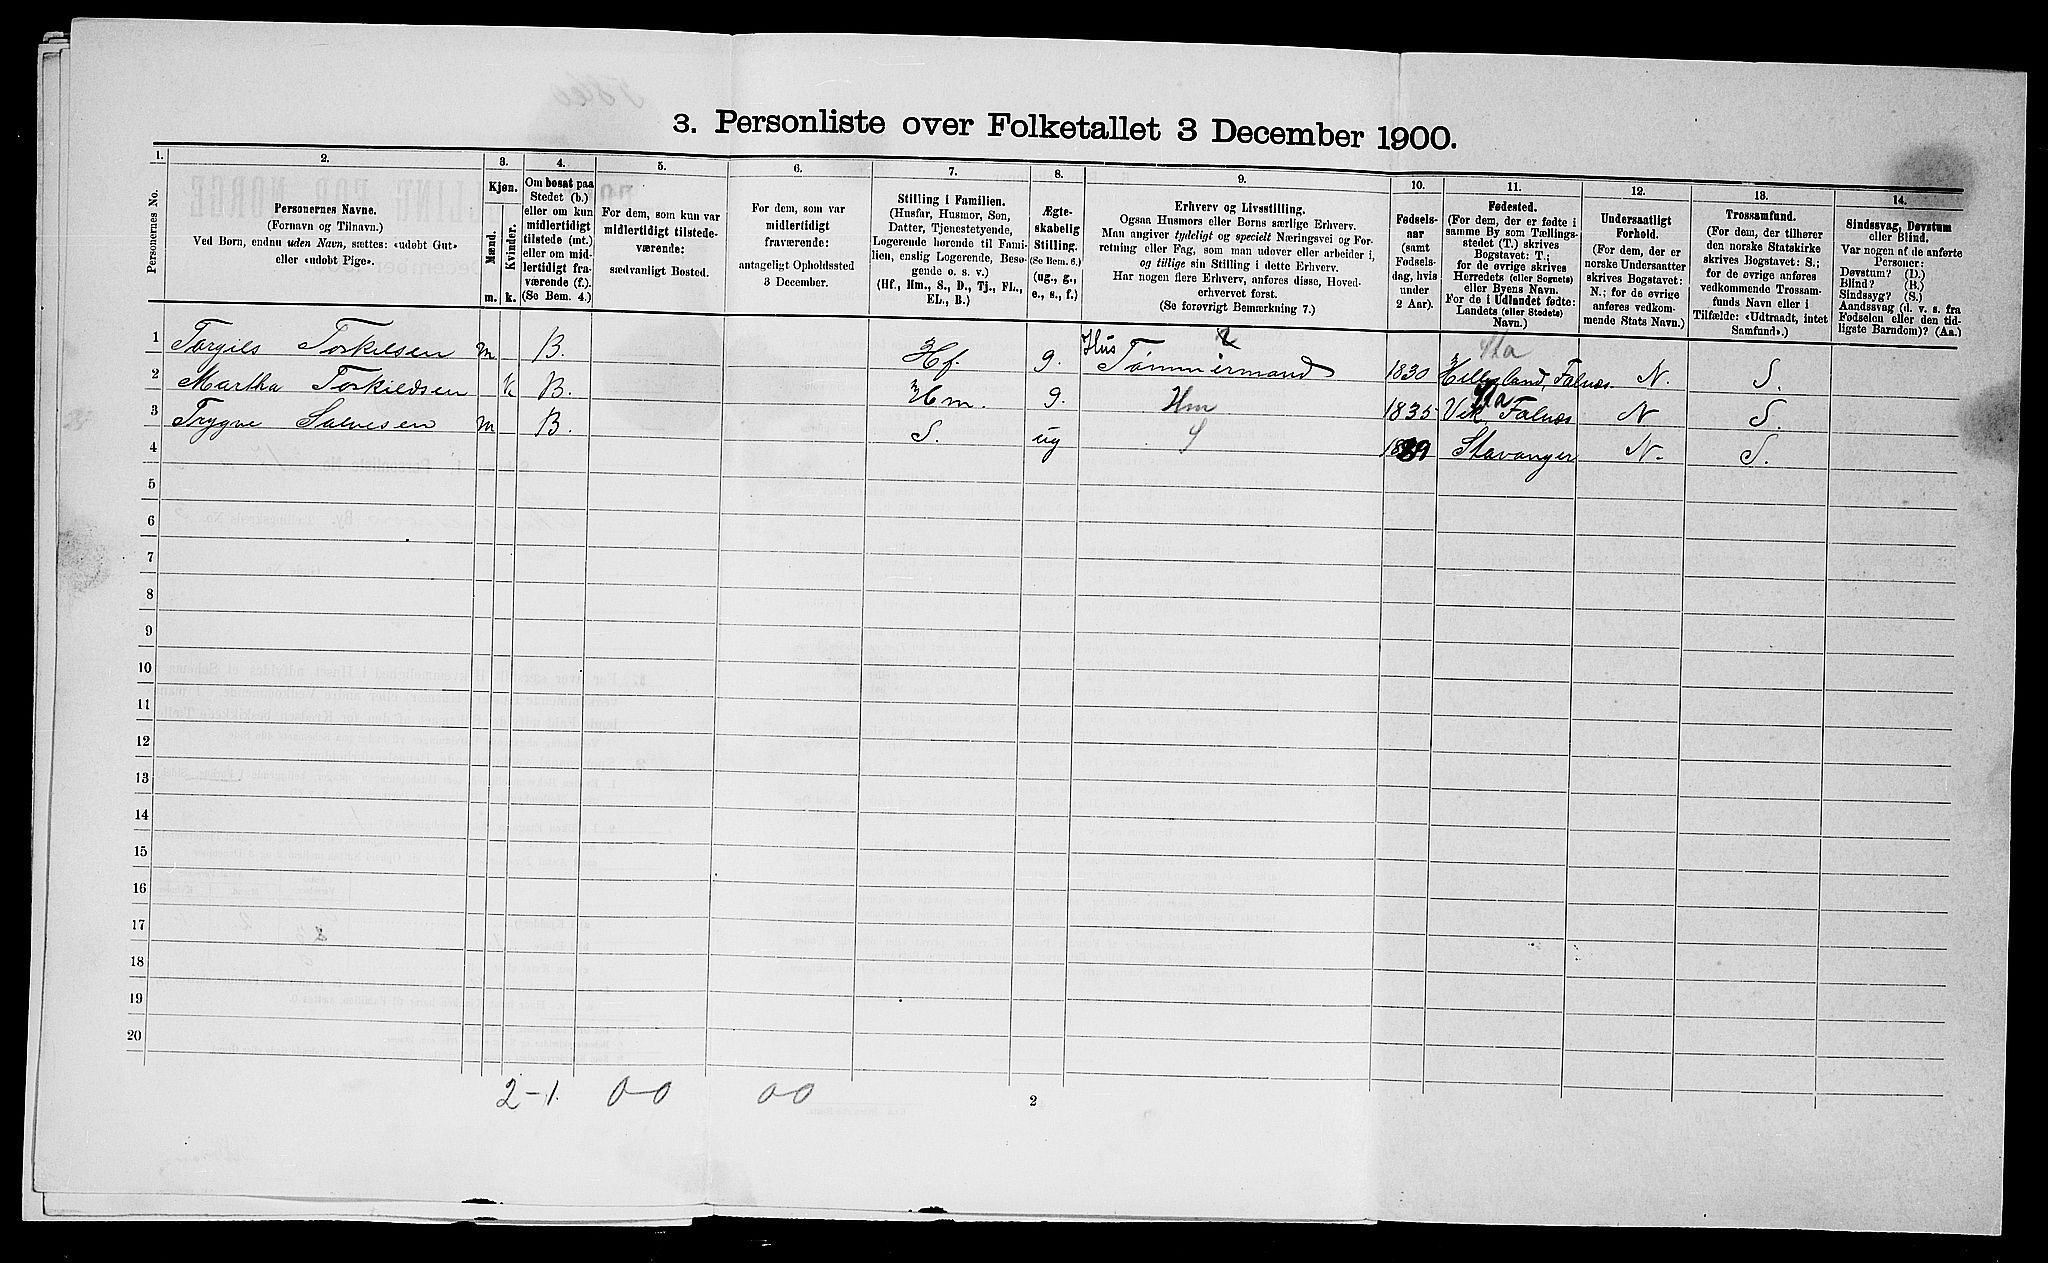 3. Personliste over Folketallet 3 December 1900.
1. 2. 3. 4. 5. 6. 7. 8. 9. 10. 11. 12. 13. 14.
Personernes No.
Personernes Navne.
(Fornavn og Tilnavn.)
Ved Børn, endnu uden Navn, sættes: «udøbt Gut»
eller «udøbt Pige».
Kjøn.
Mænd.
Kvinder.
m. k.
Om bosat paa
Stedet (b.)
eller om kun
midlertidigt
tilstede (mt.)
eller om mid-
lertidigt fra-
værende (f.).
(Se Bem. 4.)
For dem, som kun var
midlertidigt tilstede-
værende:
sædvanligt Bosted.
For dem, som var
midlertidigt
fraværende:
antageligt Opholdssted
3 December.
Stilling i Familien.
(Husfar, Husmor, Søn,
Datter, Tjenestetyende,
Logerende hørende til Fami-
lien, enslig Logerende, Besø-
gende o. s. v.)
(Hf., Hm., S., D., Tj., FL.,
EL., B.)
Ægte-
skabelig
Stilling.
(Se Bem. 6.)
(ug., g.,
e., s., f.)
Erhverv og Livsstilling.
Ogsaa Husmors eller Børns særlige Erhverv.
Man angiver tydeligt og specielt Næringsvei og For-
retning eller Fag, som man udøver eller arbeider i,
og tillige sin Stilling i dette Erhverv.
Har nogen flere Erhverv, anføres disse, Hoved-
erhvervet først.
(Se forøvrigt Bemærkning 7.)
Fødsels-
aar
(samt
Fødsels-
dag, hvis
under
2 Aar).
Fødested.
(For dem, der er fødte i
samme By som Tællings-
stedet (T.) skrives
Bogstavet: T.;
for de øvrige skrives
Herredets (eller Sognets)
eller Byens Navn.
For de i Udlandet fødte:
Landets (eller Stedets)
Navn.)
Undersaatligt
Forhold.
(For dem, der er
norske Undersaatter
skrives Bogstavet:
N.; for de øvrige
anføres vedkom-
mende Stats Navn.)
Trossamfund.
(For dem, der tilhører
den norske Statskirke
skrives Bogstavet: S.;
for de øvrige anføres
vedkommende Trossam-
funds Navn eller i
Tilfælde: «Udtraadt, intet
Samfund».)
Sindssvag, Døvstum
eller Blind.
Var nogen af de anførte
Personer:
Døvstum? (D.)
Blind? (B.)
Sindssyg? (S.)
Aandssvag (d. v. s. fra
Fødselen eller den tid-
ligste Barndom)? (Aa.)
1 Torgils Torkilsen m B. Hf. g. Hus Tømmermand 1830 Sta Helleland, Falnes N. S.
2 Martha Torkildsen k B. Hm. g. Hm 1835 Sta Vik, Falnes N S.
3 Trygve Salvesen m B. S. ug S 1889 Stavanger N. S.
4
5
6
7
8
9
10
11
12
13
14
15
16
17
18
19
20
2-1. 0-0 00
2